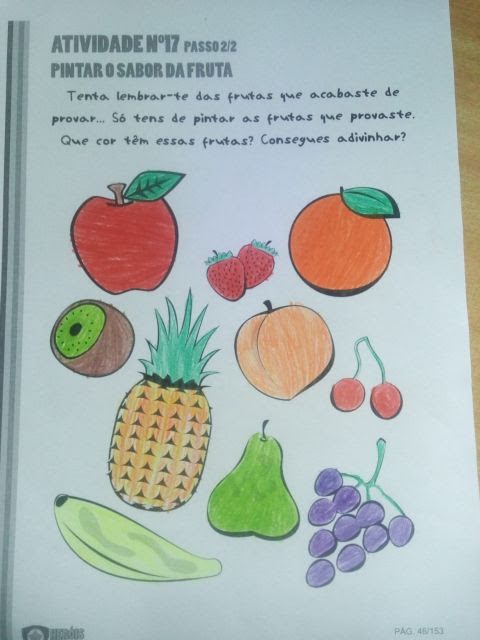 ATIVIDADE Nº17 PASSO 2/2
PINTAR O SABOR DA FRUTA
Tenta lembrar-te das frutas que acabaste de
provar... Só tens de pintar as frutas que provaste.
Que cor têm essas frutas? Consegues adivinhar?
HERÓIS
PÁG. 46/153